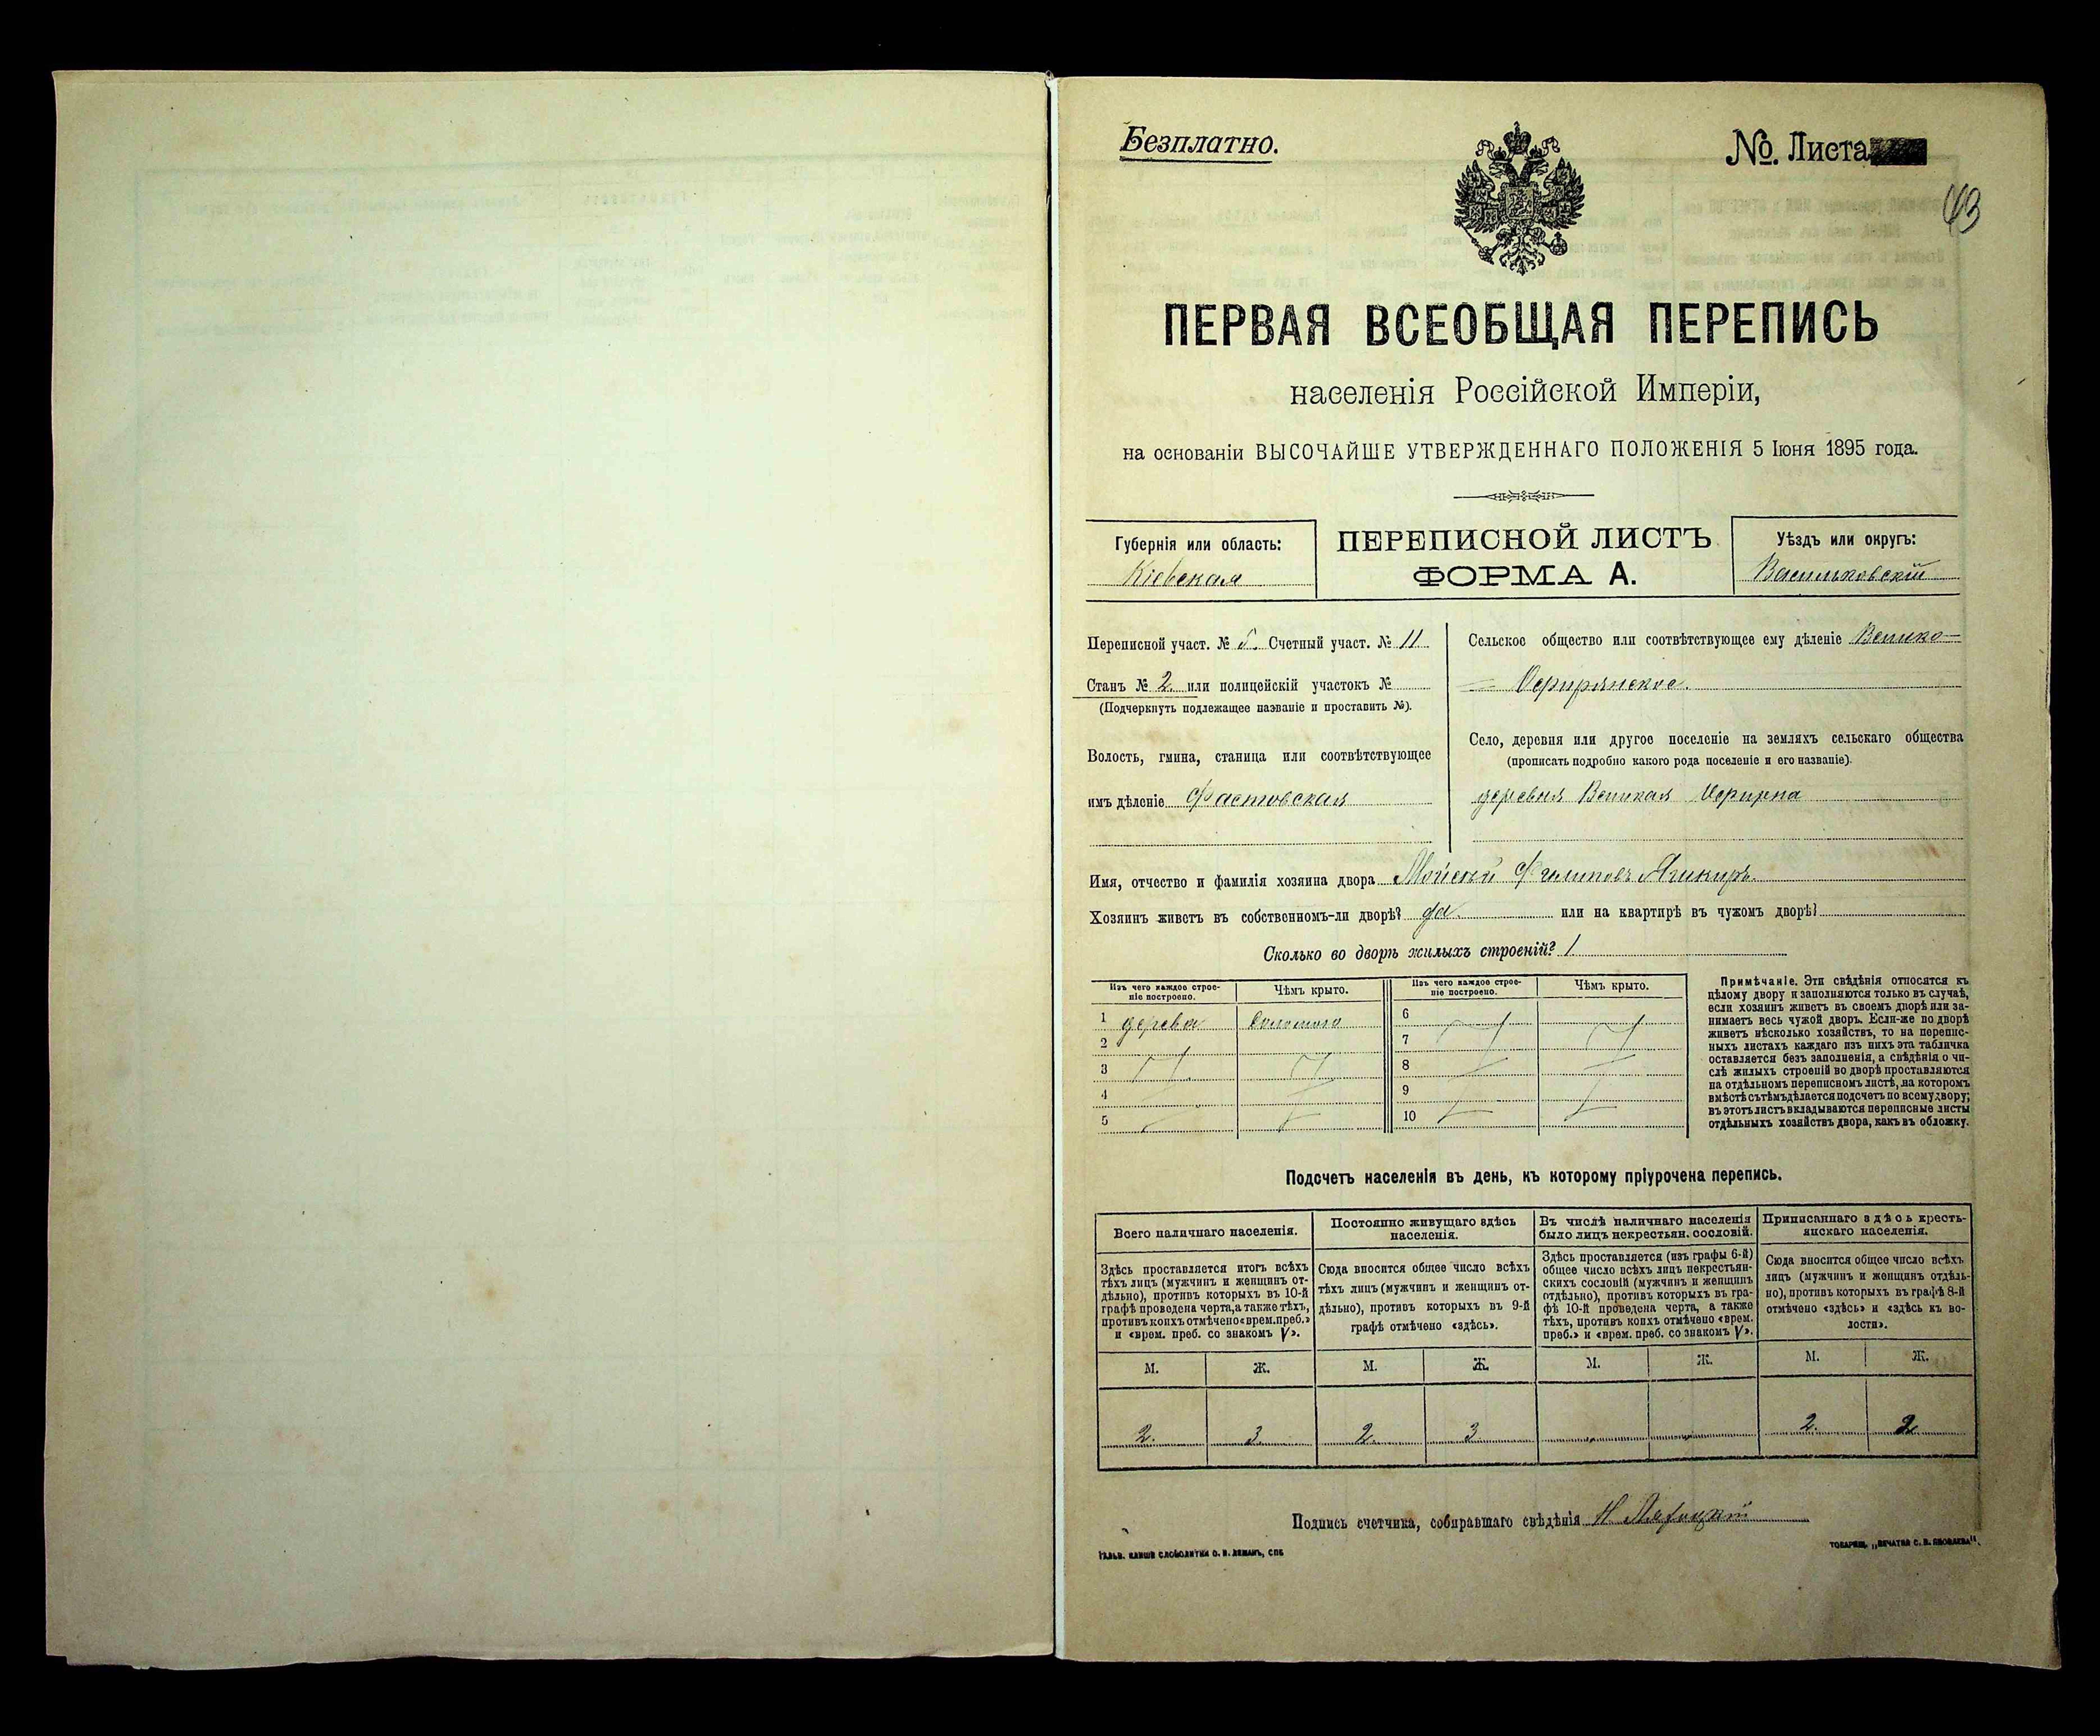 Безплатно.
№. Листа
43
ПЕРВАЯ ВСЕОБЩАЯ ПЕРЕПИСЬ
населенія Россійской Имперіи,
на основаніи ВЫСОЧАЙШЕ УТВЕРЖДЕННАГО ПОЛОЖЕНІЯ 5 Іюня 1895 года.
Губернія или область:
Кіевская
ПЕРЕПИСНОЙ ЛИСТЪ
ФОРМА А.
Уѣздъ или округъ:
Васильковскій
Переписной участ. № 5. Счетный участ. № 11
Станъ № 2 или полицейскій участокъ №
(Подчеркнуть подлежащее названіе и проставить №).
Волость, гмина, станица или соотвѣтствующее
имъ дѣленіе Фастовская
Сельское общество или соотвѣтствующее ему дѣленіе Велико-
Офирянское.
Село, деревня или другое поселеніе на земляхъ сельскаго общества
(прописать подробно какого рода поселеніе и его названіе).
деревня Великая Офирна
Имя, отчество и фамилія хозяина двора Мойсей Филиповъ
Хозяинъ живетъ въ собственномъ-ли дворѣ? да. или на квартирѣ въ чужомъ дворѣ?
Сколько во дворѣ жилыхъ строеній? 1
Изъ чего каждое строе-
ніе построено.
Чѣмъ крыто.
Изъ чего каждое строе-
ніе построено.
Чѣмъ крыто.
1 дерева соломою
2
3
4
5
6
7
8
9
10
Примѣчаніе. Эти свѣдѣнія относятся къ
цѣлому двору и заполняются только въ случаѣ,
если хозяинъ живетъ въ своемъ дворѣ или за-
нимаетъ весь чужой дворъ. Если-же по дворѣ
живетъ нѣсколько хозяйствъ, то на перепис-
ныхъ листахъ каждаго изъ нихъ эта табличка
оставляется безъ заполненія, а свѣдѣнія о чи-
слѣ жилыхъ строеній во дворѣ проставляются
на отдѣльномъ переписномъ листѣ, на которомъ
вмѣстѣ съ тѣмъ дѣлается подсчетъ по всему двору;
въ этотъ листъ вкладываются переписные листы
отдѣльныхъ хозяйствъ двора, какъ въ обложку.
Подсчетъ населенія въ день, къ которому пріурочена перепись.
Всего наличнаго населенія.
Здѣсь проставляется итогъ всѣхъ
тѣхъ лицъ (мужчинъ и женщинъ от-
дѣльно), противъ которыхъ въ 10-й
графѣ проведена черта, а также тѣхъ,
противъ коихъ отмѣчено «врем. преб.»
и «врем. преб. со знакомъ V».
Постоянно живущаго здѣсь
населенія.
Сюда вносится общее число всѣхъ
тѣхъ лицъ (мужчинъ и женщинъ от-
дѣльно), противъ которыхъ въ 9-й
графѣ отмѣчено «здѣсь».
Въ числѣ наличнаго населенія
было лицъ некрестьян. сословій.
Здѣсь проставляется (изъ графы 6-й)
общее число всѣхъ лицъ некрестьян-
скихъ сословій (мужчинъ и женщинъ
отдѣльно), противъ которыхъ въ гра-
фѣ 10-й проведена черта, а также
тѣхъ, противъ коихъ отмѣчено «врем.
преб.» и «врем. преб. со знакомъ V».
Приписаннаго здѣсь кресть-
янскаго населенія.
Сюда вносится общее число всѣхъ
лицъ (мужчинъ и женщинъ отдѣль-
но), противъ которыхъ въ графѣ 8-й
отмѣчено «здѣсь» и «здѣсь въ во-
лости».
М. Ж. М. Ж. М. Ж. М. Ж.
2. 3 2. 3 2. 2
Подпись счетчика, собиравшаго свѣдѣнія Н
ГАЛЬВ. КЛИШЕ СЛОВОЛИТНИ О. И. ЛЕМАНЪ, СПБ
ТОВАРИЩ. „ПЕЧАТНЯ С. П. ЯКОВЛЕВА“.